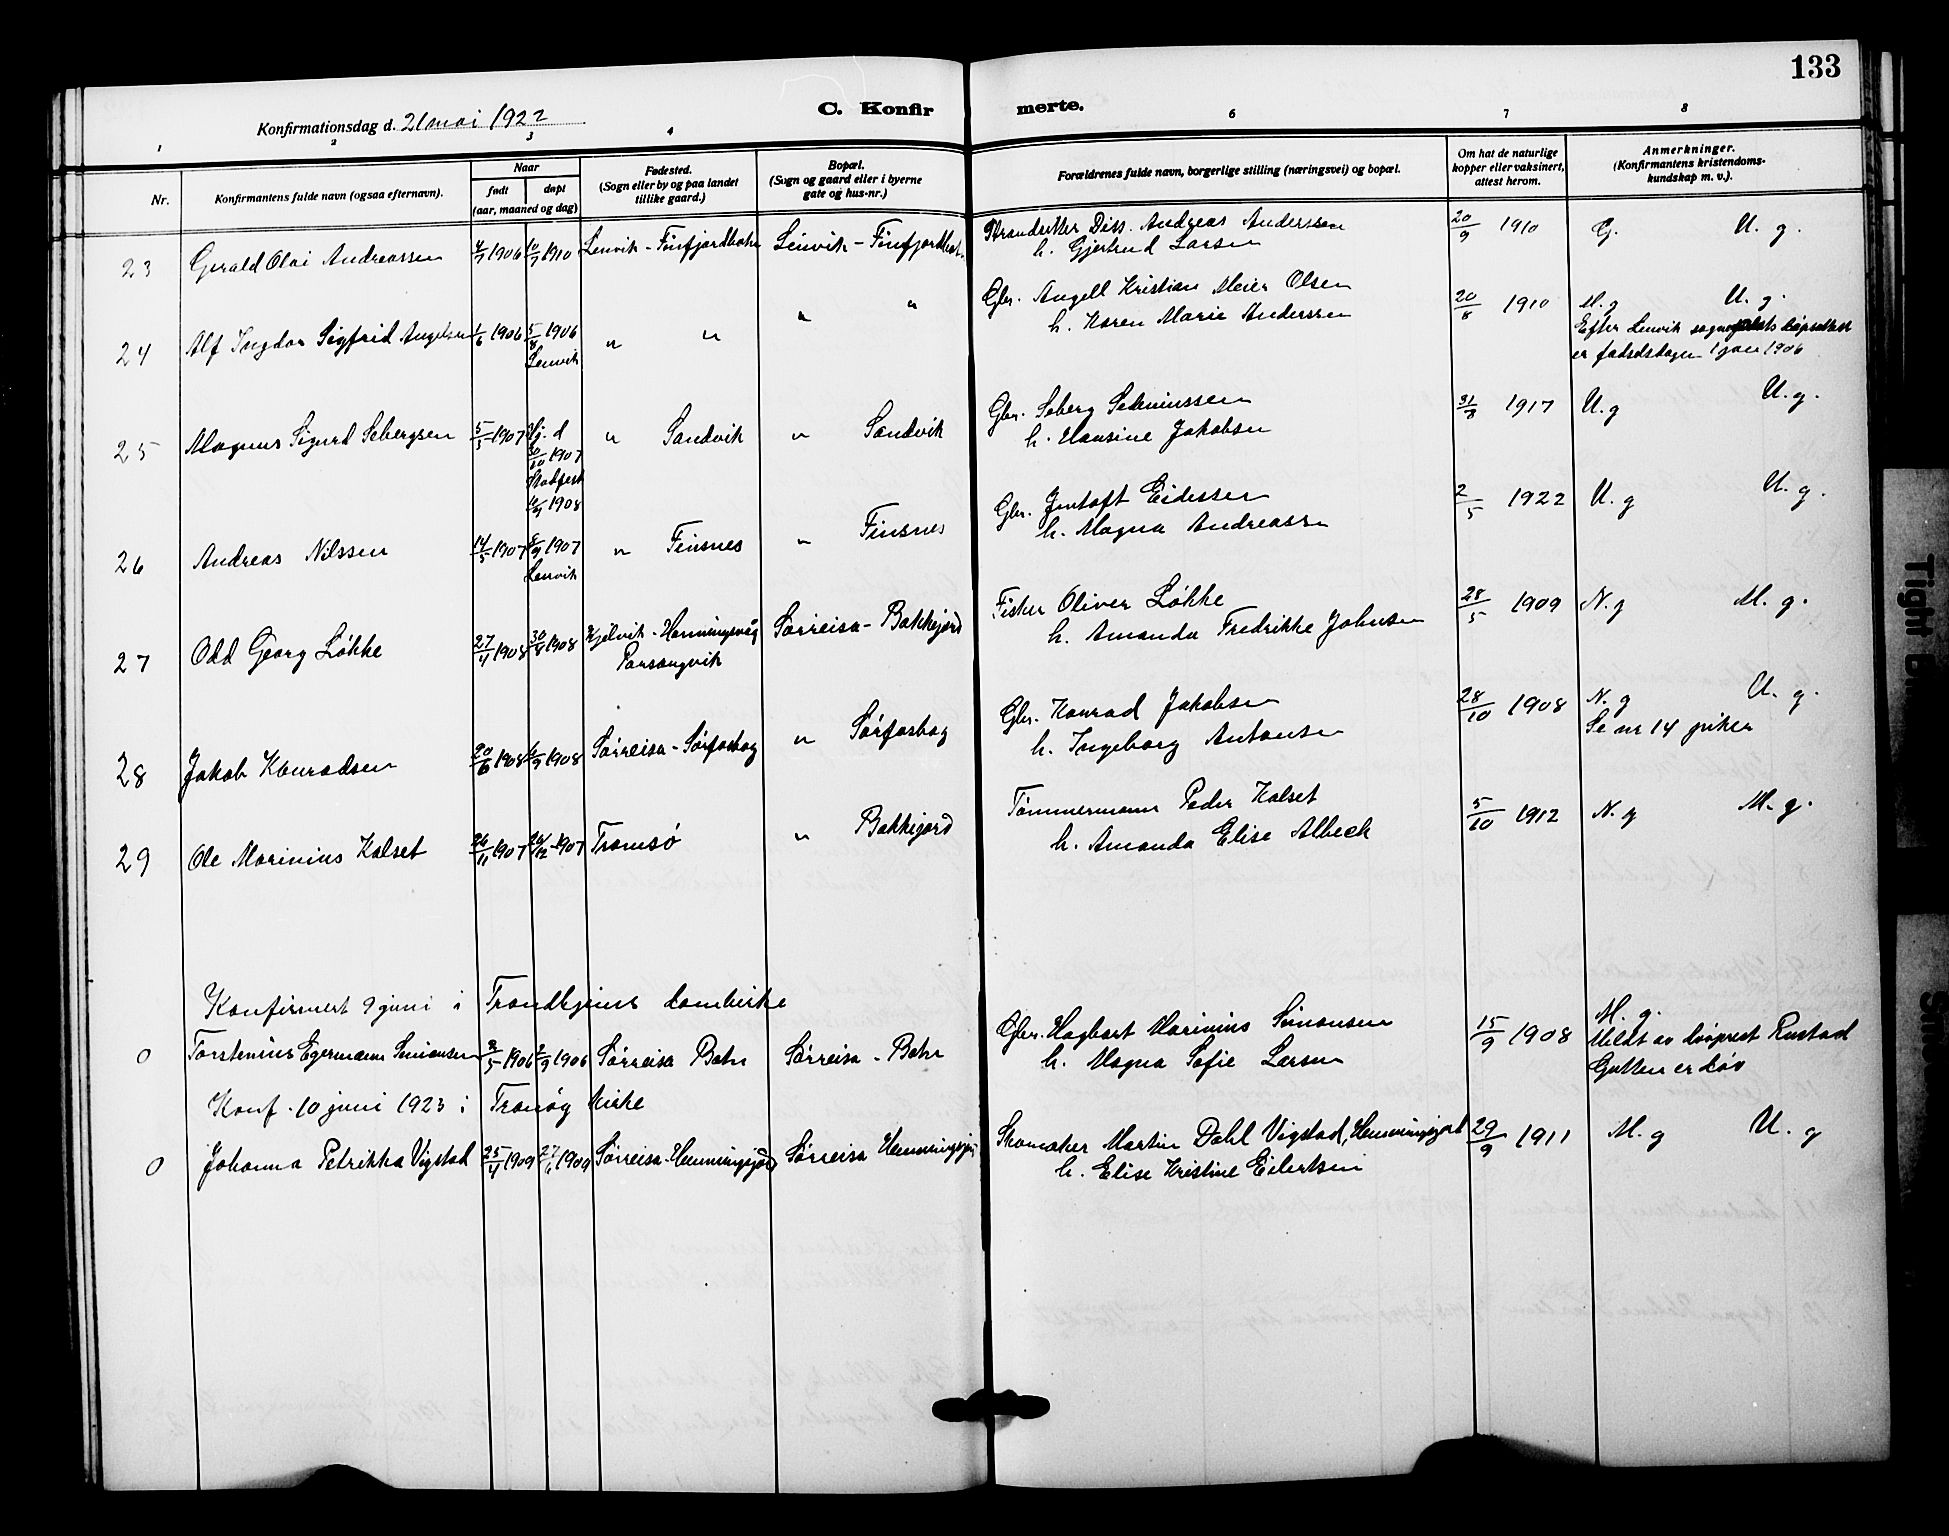 133
C. Konfirmerte.
Konfirmationsdag d. 21 mai 1922
1 2 3 4 6 7 8
Nr.
Konfirmantens fulde navn (ogsaa efternavn).
Naar
født døpt
(aar, maaned og dag)
Fødested.
(Sogn eller by og paa landet
tillike gaard.)
Bopæl.
(Sogn og gaard eller i byerne
gate og hus-nr.)
Forældrenes fulde navn, borgerlige stilling (næringsvei) og bopæl.
Om hat de naturlige
kopper eller vaksinert,
attest herom.
Anmerkninger.
(Konfirmantens kristendoms-
kundskap m. v.).
23 Gerald Olai Andreassen 4/7 1906 10/7 1910 Lenvik - Finfjordbotn Lenvik - Finfjordbotn Strandsitter Diss. Andreas Anderssen 20/9 1910 G. U. g.
h. Gjertrud Larsen
24 Alf Ingdor Sigfrid Angelsen 1/6 1906 5/8 1906 " " " " Gbr. Angell Kristian Meier Olsen 20/8 1910 M. g U. g.
Lenvik h. Karen Marie Anderssen Efter Lenvik døpeattest
er fødselsdagen 1 jan 1906
25 Magnus Sigurd Sebergsen 5/5 1907 Hj. d " Sandvik " Sandvik Gbr. Seberg 31/8 1917 U. g U. g.
30/10 1907 h. Hansine Jakobsen
Stadfest
1908
26 Andreas Nilssen 14/5 1907 8/9 1907 " Finsnes " Finsnes Gbr. Jentoft Eidessen 2/5 1922 U. g U. g.
Lenvik h. Magna Andreassen
27 Odd Georg Løkke 27/4 1908 30/8 1908 Kjelvik - Honningsvåg Sørreisa - Bakkejord Fisker Oliver Løkke 28/5 1909 N. g M. g.
Porsangvik h. Amanda Fredrikke Johnsen
28 Jakob Konradsen 20/6 1908 6/9 1908 Sørreisa - Sørfosbog " Sørfosbog Gbr. Konrad Jakobsen 28/10 1908 N. g U. g
h. Ingeborg Antonsen Se nr 14 piker
29 Ole Marinius Kalset 26/11 1907 26/12 1907 Tromsø " Bakkejord Tømmermann Peder Kalset 5/10 1912 N. g M. g.
h. Amanda Elise Albeck
Konfirmert 9 juni i Trondhjems domkirke
0 Torstenius Egermann Simonsen 3/5 1906 2/9 1906 Sørreisa Botn Sørreisa - Botn Gbr. Hagbart Marinius Simonsen 15/9 1908 M. g.
h. Magna Sofie Larsen Meldt av døveprest Rustad
Gutten er døv
Konf. 10 juni 1923 i Tranøy kirke
0 Johanna Petrikka Vigstad 25/4 1909 27/6 1909 Sørreisa - Hemmingsjord Sørreisa Hemmingsjord Skomaker Martin Dahl Vigstad, Hemmingsjord 29/9 1911 M. g U. g
h. Elise Kristine Eilertsen
Tight